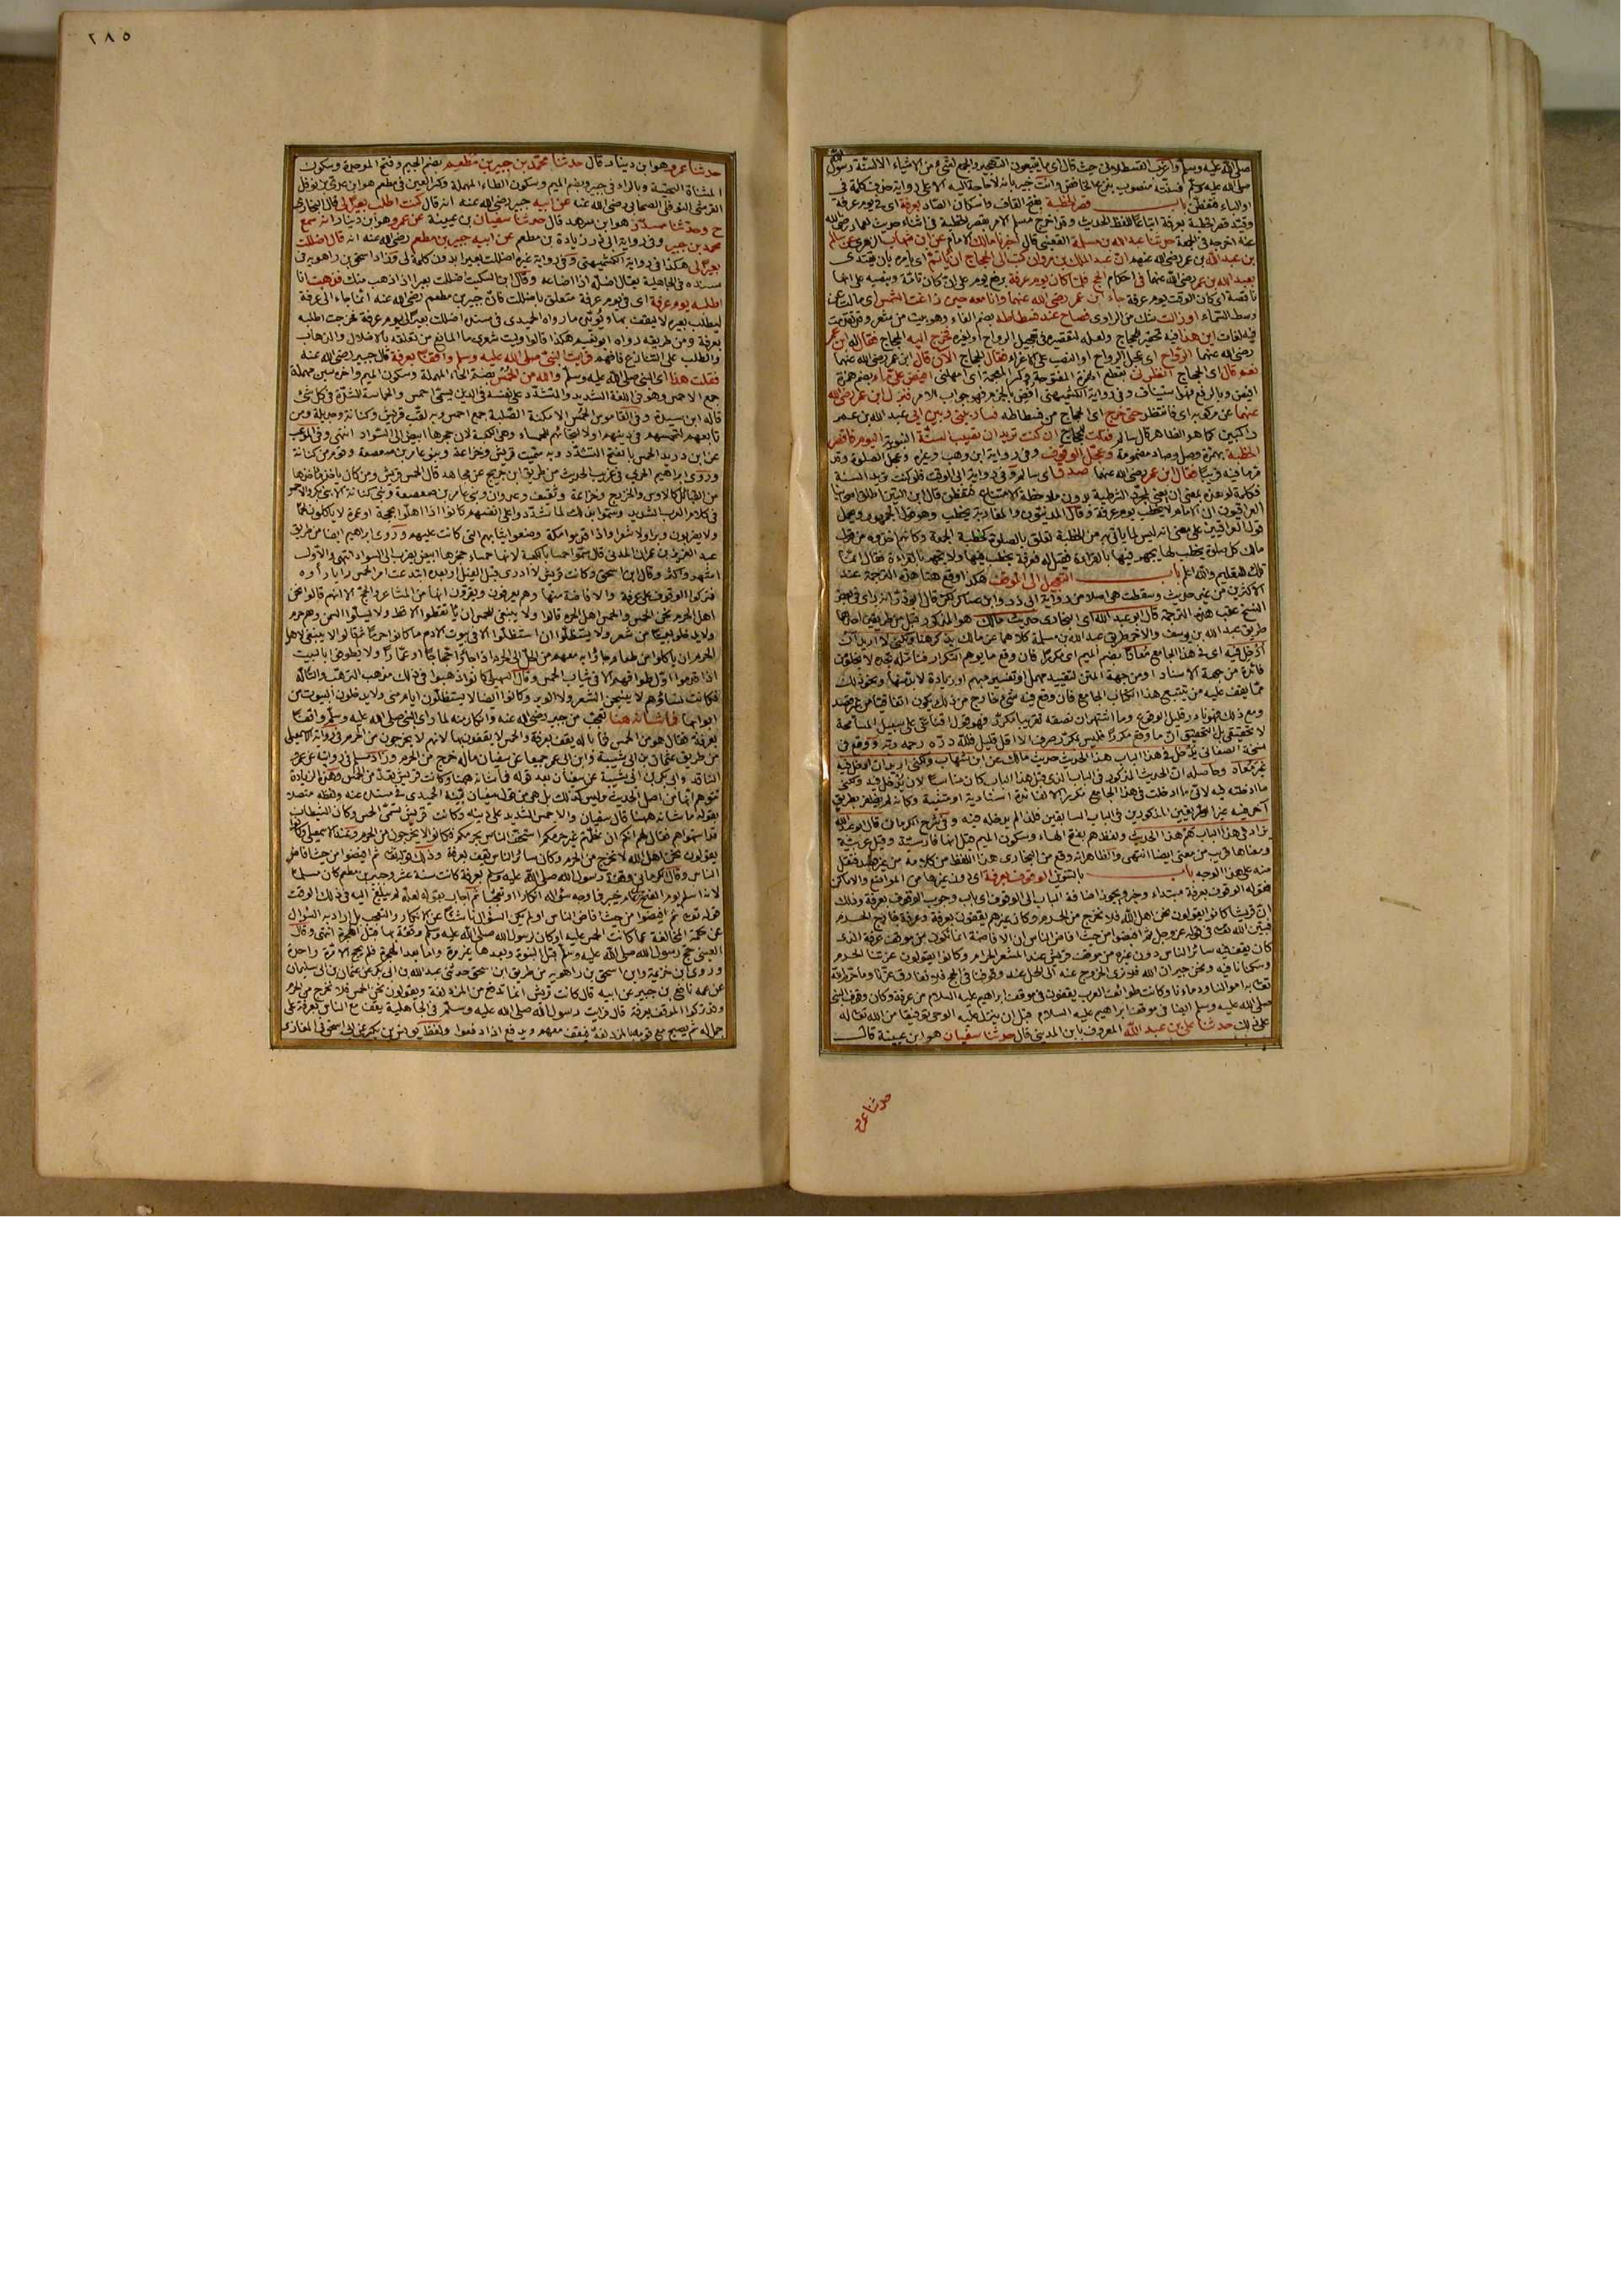 صلى الله عليه وسلم واغرب القسطلاني حيث قال اي ما يتبعون التهجير والجمع لشيء من الاشياء الا لسنة رسول
صلى الله عليه وسلم فسنته منصوب بنزع الخافض وانت خبير بانه لا حاجة اليه الا على رواية حذف كلمة في
او الباء فتفطن باب قصر الخطبة بفتح القاف واسكان الصاد بعرفة اي في يوم عرفة
وقيد قصر الخطبة بعرفة اتباعا للفظ الحديث وقد اخرج مسلم الامر بقصر الخطبة في اثناء حديث لعمار رضي الله
عنه اخرجه في الجمعة حدثنا عبد الله بن مسلمة القعنبي قال اخبرنا مالك الامام عن ابن شهاب الزهري عن سالم
بن عبد الله بن عمر رضي الله عنهم ان عبد الملك بن مروان كتب الى الحجاج ان يأتم اي يأمره بان يقتدي
بعبد الله بن عمر رضي الله عنهما في احكام الحج فلما كان يوم عرفة برفع يوم على ان كان تامة وبنصبه على انها
ناقصة اي كان الوقت يوم عرفة جاء ابن عمر رضي الله عنهما وانا معه حين زاغت الشمس اي مالت عن
وسط السماء او زالت شك من الراوي فصاح عند فسطاطه بضم الفاء وهو بيت من شعر
اين هذا فيه تحقير للحجاج ولعله لتقصيره في تعجيل الرواح او لغيره فخرج اليه الحجاج فقال له ابن عمر
رضي الله عنهما الرواح اي عجل الرواح او النصب على الاغراء فقال الحجاج الآن قال ابن عمر رضي الله عنهما
نعم قال اي الحجاج انظرني بقطع الهمزة المفتوحة وكسر المعجمة اي امهلني افيض علي ماء بضم همزة
افيض وبالرفع على الاستيناف وفي رواية الكشميهني افض بالجزم فهو جواب الامر فنزل ابن عمر رضي الله
عنهما عن مركوبه اي فانتظر حتى خرج اي الحجاج من فسطاطه فسار بيني وبين ابي عبد الله بن عمر
راكبين كما هو الظاهر قال سالم فقلت للحجاج ان كنت تريد ان تصيب السنة النبوية اليوم فاقصر
الخطبة بهمزة وصل وصاد مضمومة وعجل الوقوف وفي رواية ابن وهب وغيره وعجل الصلوة وقد
مر ما فيه قريبا فقال ابن عمر رضي الله عنهما صدق اي سالم وفي رواية ابي الوقت فلو كنت تريد السنة
فكلمة لو هذه بمعنى ان يعني لمجرد الشرطية بدون ملاحظة الامتناع فتفطن قال ابن التين
العراقيون ان الامام لا يخطب يوم عرفة وقال المدنيون والمغاربة يخطب وهو قول الجمهور ويحمل
قول العراقيين على معنى انه ليس لما يأتي به من الخطبة تعلق بالصلوة كخطبة الجمعة وكانهم اخذوه من قول
مالك كل صلوة يخطب لها يجهر فيها بالقراءة فقيل له فعرفة يخطب فيها ولا يجهر بالقراءة فقال انما
تلك للتعليم والله اعلم باب التعجيل الى الموقف هكذا وقع هنا هذه الترجمة عند
الاكثرين من غير حديث وسقطت هي اصلا من رواية ابي ذر وابن عساكر لكن قال ابو ذر انه رأى في بعض
النسخ عقب هذه الترجمة قال ابو عبد الله اي البخاري حديث مالك هو المذكور قبل من طريقين احدهما
طريق عبد الله بن يوسف والاخر طريق عبد الله بن مسلمة كلاهما عن مالك يذكر هنا ولكني لا اريد ان
ادخل فيه اي في هذا الجامع معادا بضم الميم اي مكررا فان وقع ما يوهم التكرار فتأمله تجده لا يخلو من
فائدة من جهة الاسناد او من جهة المتن لتقييد مهمل او تفسير مبهم او زيادة لا بد منها ونحو ذلك
مما يقف عليه من تتبع هذا الكتاب الجامع فان وقع فيه شيء خارج من ذلك يكون اتفاقيا من غير قصد
ومع ذلك فهو نادر قليل الوقوع وما اشتهر ان نصفه تقريبا مكرر فهو قول اقناعي على سبيل المسامحة
لا تحقيقي بل التحقيق ان ما وقع مكررا فليس بتكرر صرف الا اقل قليل فلله دره رحمه الله ووقع في
نسخة الصغاني يدخل في هذا الباب هذا الحديث حديث مالك عن ابن شهاب ولكني اريد ان ادخل فيه
غير معاد وحاصله ان الحديث المذكور في الباب الذي قبل هذا الباب كان مناسبا لان يدخل فيه ولكني
ما ادخلته فيه لاني ما ادخلت في هذا الجامع مكررا الا لفائدة اسنادية او متنية وكانه لم يظفر بطريق
آخر فيه غير الطريقين المذكورين في الباب السابقين فلذا لم يدخله فيه وفي شرح الكرماني قال ابو عبد الله
يزاد في هذا الباب هم هذا الحديث ولفظ هم بفتح الهاء وسكون الميم قيل انها فارسية وقيل عربية
ومعناها قريب من معنى ايضا انتهى والظاهر انه وقع من البخاري هذا اللفظ من كلامه من غير قصد فنقل
منه على هذا الوجه باب بالتنوين الوقوف بعرفة اي دون غيرها من المواضع والاماكن
فقوله الوقوف بعرفة مبتداء وخبر ويجوز اضافة الباب الى الوقوف اي باب وجوب الوقوف بعرفة وذلك
ان قريشا كانوا يقولون نحن اهل الله فلا نخرج من الحرم وكان غيرهم يقفون بعرفة وعرفة خارج الحرم
فبين الله تعالى في قوله عز وجل ثم افيضوا من حيث افاض الناس ان الافاضة انما تكون من موقف عرفة الذي
كان يقف فيه سائر الناس دون غيره من موقف قريش عند المشعر الحرام وكانوا يقولون عزتنا الحرم
وسكنانا فيه ونحن جيران الله فلا نرى الخروج عنه الى الحل عند وقوفنا في الحج فلا نفارق عزنا وما حرم الله
تعالى به اموالنا ودماءنا وكانت طوائف العرب يقفون في موقف ابراهيم عليه السلام من عرفة وكان وقوف النبي
صلى الله عليه وسلم ايضا في موقف ابراهيم عليه السلام قبل ان ينزل عليه الوحي توفيقا من الله تعالى له
على ذلك حدثنا علي بن عبد الله المعروف بابن المديني قال حدثنا سفيان هو ابن عيينة قال
حدثنا عمرو
٢٨٥
حدثنا عمرو هو ابن دينار قال حدثنا محمد بن جبير بن مطعم بضم الجيم وفتح الموحدة وسكون
المثناة التحتية وبالراء في جبير وبضم الميم وسكون الطاء المهملة وكسر العين في مطعم هو ابن عدي بن نوفل
القرشي النوفلي الصحابي رضي الله عنه عن ابيه جبير رضي الله عنه انه قال كنت اطلب بعيرا لي قال البخاري
ح وحدثنا مسدد هو ابن مسرهد قال حدثنا سفيان بن عيينة عن عمرو هو ابن دينار انه سمع
محمد بن جبير وفي رواية ابي ذر زيادة بن مطعم عن ابيه جبير بن مطعم رضي الله عنه انه قال اضللت
بعيرا لي هكذا في رواية الكشميهني وفي رواية غيره اضللت بعيرا بدون كلمة لي وزاد اسحق بن راهويه في
مسنده في الجاهلية يقال اضله اذا اضاعه وقال ابن السكيت ضللت بعيرا اذا ذهب منك فذهبت انا
اطلبه يوم عرفة اي في يوم عرفة متعلق باضللت فان جبير بن مطعم رضي الله عنه انما جاء الى عرفة
ليطلب بعيره لا ليقف بها ويؤيده ما رواه الحميدي في مسنده اضللت بعيرا لي يوم عرفة فخرجت اطلبه
بعرفة ومن طريقه رواه ابو نعيم هكذا قالوا وليت شعري ما المانع من تعلقه بالاضلال والذهاب
والطلب على التنازع فافهم فرأيت النبي صلى الله عليه وسلم واقفا بعرفة قال جبير رضي الله عنه
فقلت هذا اي النبي صلى الله عليه وسلم والله من الحمس بضم الحاء المهملة وسكون الميم واخره سين مهملة
جمع الاحمس وهو في اللغة الشديد والمتشدد على نفسه في الدين يسمى احمس والحماسة الشدة في كل شيء
قاله ابن سيدة وفي القاموس الحمس الامكنة الصلبة جمع احمس وبه لقب قريش وكنانة وجديلة ومن
تابعهم لتحمسهم في دينهم او لالتجائهم بالحمساء وهي الكعبة لان حجرها ابيض الى السواد انتهى وفي الموعب
عن ابن دريد الحمس بالفتح التشدد وبه سميت قريش وخزاعة وبنو عامر بن صعصعة وقوم من كنانة
وروى ابراهيم الحربي في غريب الحديث من طريق ابن جريج عن مجاهد قال الحمس قريش ومن كان يأخذ مأخذها
من القبائل كالاوس والخزرج وخزاعة وثقيف وعدوان وبني عامر بن صعصعة وبني كنانة الا بني بكر والاحمس
في كلام العرب الشديد وسموا بذلك لما تشددوا على انفسهم كانوا اذا اهلوا بحجة او عمرة لا ياكلون لحما
ولا يضربون وبرا ولا شعرا واذا قدموا مكة وضعوا ثيابهم التي كانت عليهم وروى ابراهيم ايضا من طريق
عبد العزيز بن عمران المدني قال سموا حمسا بالكعبة لانها حمساء حجرها ابيض يضرب الى السواد انتهى والاول
اشهر واكثر وقال ابن اسحق وكانت قريش لا ادري قبل الفيل او بعده ابتدعت امر الحمس رأيا رأوه
فتركوا الوقوف على عرفة والافاضة منها وهم يعرفون ويقرون انها من المشاعر والحج الا انهم قالوا نحن
اهل الحرم نحن الحمس والحمس اهل الحرم قالوا ولا ينبغي للحمس ان يأتقطوا الاقط ولا يسلوا السمن وهم حرم
ولا يدخلوا بيتا من شعر ولا يستظلوا ان استظلوا الا في بيوت الادم ما كانوا حرما ثم قالوا لا ينبغي لاهل
الحرم ان ياكلوا من طعام جاؤا به معهم من الحل الى الحرم اذا جاؤا حجاجا او عمارا ولا يطوفوا بالبيت
اذا قدموا اول طوافهم الا في ثياب الحمس وقال السهيلي كانوا ذهبوا في ذلك مذهب الترهب والتأله
فكانت نساؤهم لا ينسجن الشعر ولا الوبر وكانوا ايضا لا يستظلون ايام منى ولا يدخلون البيوت من
ابوابها فما شأنه ههنا تعجب من جبير رضي الله عنه وانكار منه لما رأى النبي صلى الله عليه وسلم واقفا
بعرفة فقال هو من الحمس فما باله يقف بعرفة والحمس لا يقفون بها لانهم لا يخرجون من الحرم وفي رواية الاسمعيلي
من طريق عثمان بن ابي شيبة وابن ابي عمر جميعا عن سفيان ماله خرج من الحرم وزاد مسلم في روايته عن عمرو
الناقد وابي بكر بن ابي شيبة عن سفيان بعد قوله فما شأنه ههنا وكانت قريش تعد من الحمس وهذه الزيادة
توهم انها من اصل الحديث وليس كذلك بل هي من قول سفيان بينه الحميدي في مسنده عنه ولفظه متصلا
بقوله ما شأنه ههنا قال سفيان والاحمس الشديد على دينه وكانت قريش تسمى الحمس وكان الشيطان
قد استهواهم فقال لهم انكم ان عظمتم غير حرمكم استخف الناس بحرمكم فكانوا لا يخرجون من الحرم وعند الاسمعيلي وكانوا
يقولون نحن اهل الله لا نخرج من الحرم وكان سائر الناس يقف بعرفة وذلك قوله تعالى ثم افيضوا من حيث افاض
الناس وقال الكرماني وقفة رسول الله صلى الله عليه وسلم بعرفة كانت سنة عشر وجبير بن مطعم كان مسلما
لانه اسلم يوم الفتح بل عام خيبر فما وجه سؤاله انكارا او تعجبا ثم اجاب بقوله لعله لم يبلغ اليه في ذلك الوقت
قوله تعالى ثم افيضوا من حيث افاض الناس او لم يكن السؤال ناشئا عن الانكار والتعجب بل اراد به السؤال
عن حكمة المخالفة عما كانت الحمس عليه او كان لرسول الله صلى الله عليه وسلم وقفة بها قبل الهجرة انتهى وقال
العيني حج رسول الله صلى الله عليه وسلم قبل النبوة وبعدها غير مرة واما بعد الهجرة فلم يحج الا مرة واحدة
وروى ابن خزيمة وابن اسحق بن راهويه من طريق ابن اسحق حدثني عبد الله بن ابي بكر عن عثمان بن ابي سليمان
عن عمه نافع بن جبير عن ابيه قال كانت قريش انما تدفع من المزدلفة ويقولون نحن الحمس فلا نخرج من الحرم
وقد تركوا الموقف بعرفة قال فرأيت رسول الله صلى الله عليه وسلم في الجاهلية يقف مع الناس بعرفة على
جمل له ثم يصبح مع قومه بالمزدلفة فيقف معهم ويدفع اذا دفعوا ولفظ يونس بن بكير عن ابن اسحق في المغازي